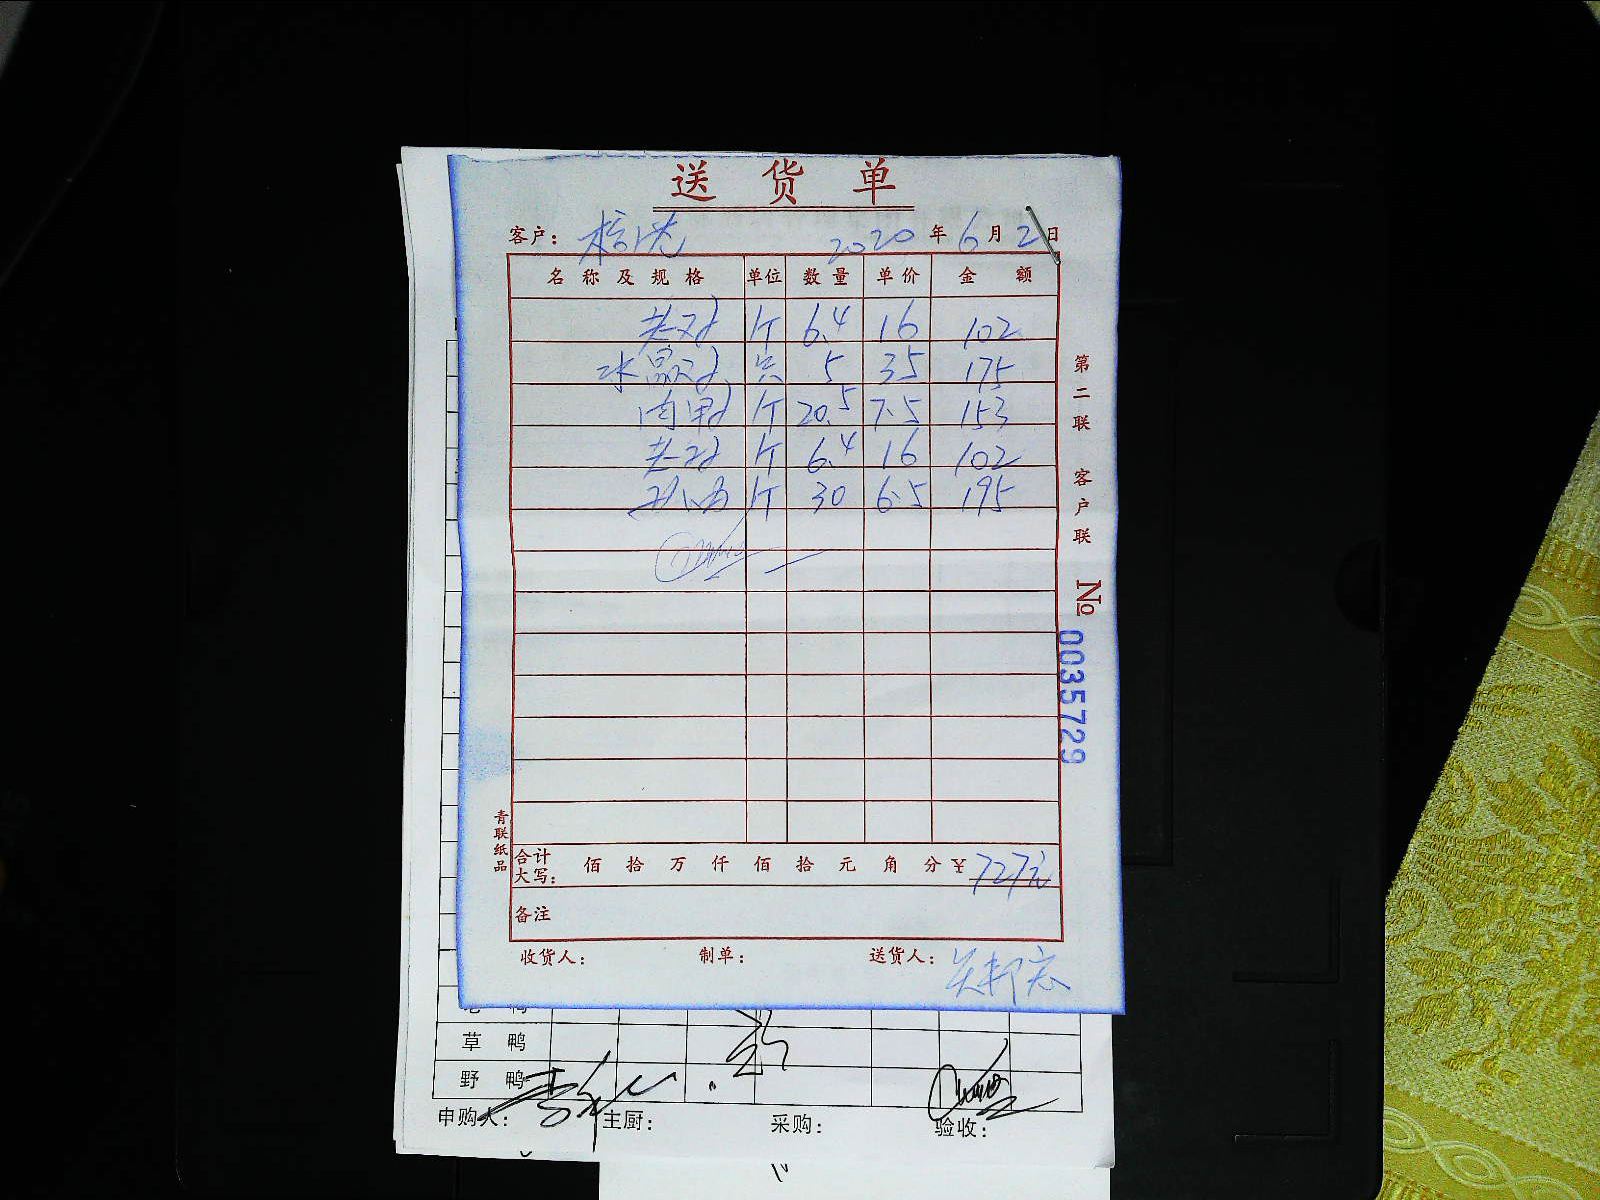 送货单
客户： 2020年6月2日
名称及规格 单位 数量 单价 金额
老鸡 斤 6.4 16 102
水晶鸡 只 5 35 175
肉鸭 斤 20.5 7.5 153
老鸡 斤 6.4 16 102
斤 30 6.5 195
合计大写： 佰 拾 万 仟 佰 拾 元 角 分 ¥727元
备注
收货人： 制单： 送货人：
第二联 客户联
No 0035729
青联纸品
草鸭
野鸭
申购人： 主厨： 采购： 验收：